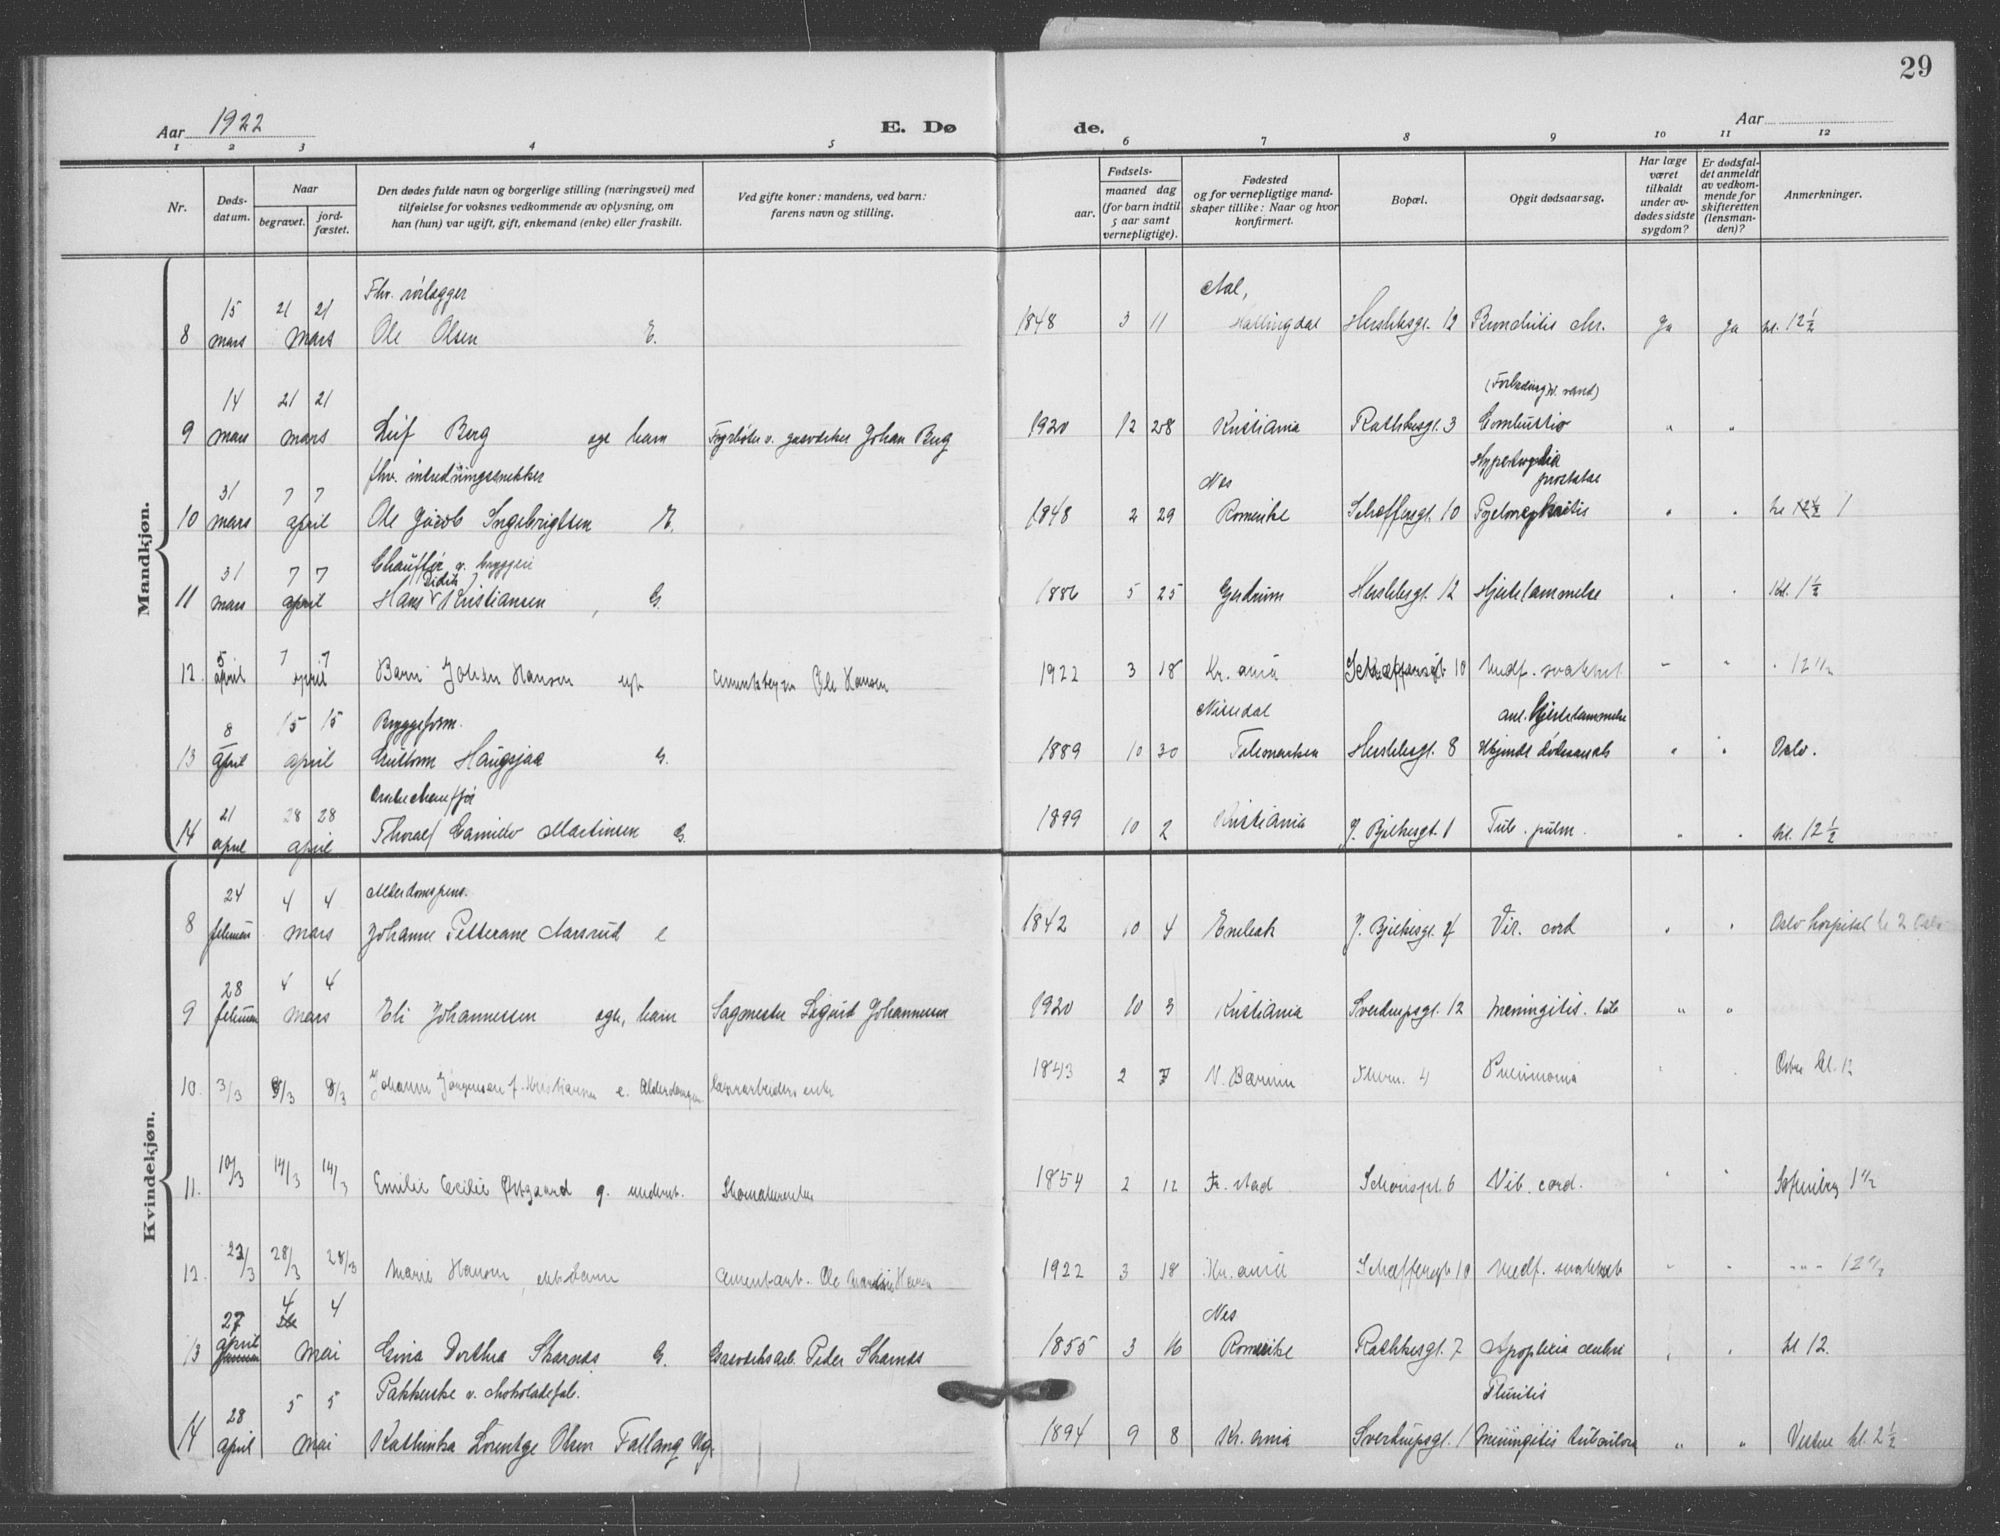 29
Aar 1922
E. Dø
de.
Aar
1 2 3 4 5 6 7 8 9 10 11 12
Nr.
Døds-
datum.
Naar
begravet.
jord-
fæstet.
Den dødes fulde navn og borgerlige stilling (næringsvei) med
tilføielse for voksnes vedkommende av oplysning, om
han (hun) var ugift, gift, enkemand (enke) eller fraskilt.
Ved gifte koner: mandens, ved barn:
farens navn og stilling.
Fødsels-
aar.
maaned dag
(for barn indtil
5 aar samt
vernepligtige).
Fødested
og for vernepligtige mand-
skaper tillike: Naar og hvor
konfirmert.
Bopæl.
Opgit dødsaarsag.
Har læge
været
tilkaldt
under av-
dødes sidste
sygdom?
Er dødsfal-
det anmeldt
av vedkom-
mende for
skifteretten
(lensman-
den)?
Anmerkninger.
Mandkjøn.
Fhv. rørlægger Aal,
15 21 21
8 mars mars Ole Olsen E. 1848 3 11 Hallingdal Herslebsgt. 12 Bronchitis chr. Ja Ja kl. 12½
14 21 21
9 mars mars Leif Berg egte barn Johan Berg 1920 12 28 Kristiania Rathkesgt. 3 Combustio " "
fhv. indredningssnekker Nes Hypertrophia prostatae
31 7 7
10 mars april Ole Jacob Ingebrigtsen E. 1848 2 29 Romerike Schæffersgt. 10 Pyelonephritis " " kl 12½ 1
Chauffør v. bryggeri
31 7 7
11 mars april Hans Kristiansen, G. 1886 5 25 Gjerdrum Herslebsgt. 12 Hjertelammelse " " Kl. 1½
5 7 7
12. april april Barn Johan Hansen Ole Hansen 1922 3 18 Kr.ania Schæffersgt. 10 Medf. svakhet " " " 12 1/2
Bryggeform. Nissedal anl. Hjertelammelse
8 15 15
13 april april Haugsjaa G. 1889 10 30 Telemarken Herslebsgt. 8 Ukjendt dødsaarsak " " Oslo.
21 28 28
14 april april Thoralf Martinsen G. 1899 10 2 Kristiania J. Bjelkesgt. 1 Tub. pulm. " " kl. 12½
Kvindekjøn.
Alderdomspens.
24 4 4
8 februar mars Johanne Petterane Aarsrud e 1842 10 4 Enebak J. Bjelkesgt. 4 Vit. cord " " Oslo hospital kl 2 Oslo
28 4 4
9 februar mars Eli Johannessen egte, barn Sagmester Sigurd Johannessen 1920 10 3 Kristiania Sverdrupsgt. 12 Meningitis. tub " "
10. 3/3 8/3 8/3 Johanne Jørgensen f. Kristiansen e. 1843 2 7 V. Bærum 4 Pneumonia " " Østre kl. 12
11. 10/3 14/3 14/3 Emilie Cecilie Østgaard g. 1854 2 12 Fr.stad Schouspl. 6 Vit. cord. " " Sofienberg 1 1/2
12. 22/3 28/3 28/3 Marie Hansen, Cementarb. Ole 1922 3 18 Kr.ania Schæffersgt 10 Medf. svakhet " " " " 12 1/2
Nes
27 4 4
13 april mai Gina Dorthea Skarnes G. Gasverksarb. Peder Skarnes 1855 3 16 Romerike Rathkesgt. 7 Apoplexia cerebri " " kl 12.
Pakkerske v. chokoladefab. Pleuritis
28 5 5
14 april mai Kathinka Lorentze Olsen Fallang Ug. 1894 9 8 Kr.ania Sverdrupsgt. 1 Meningitis tuberculosa " " Vestre kl. 2½